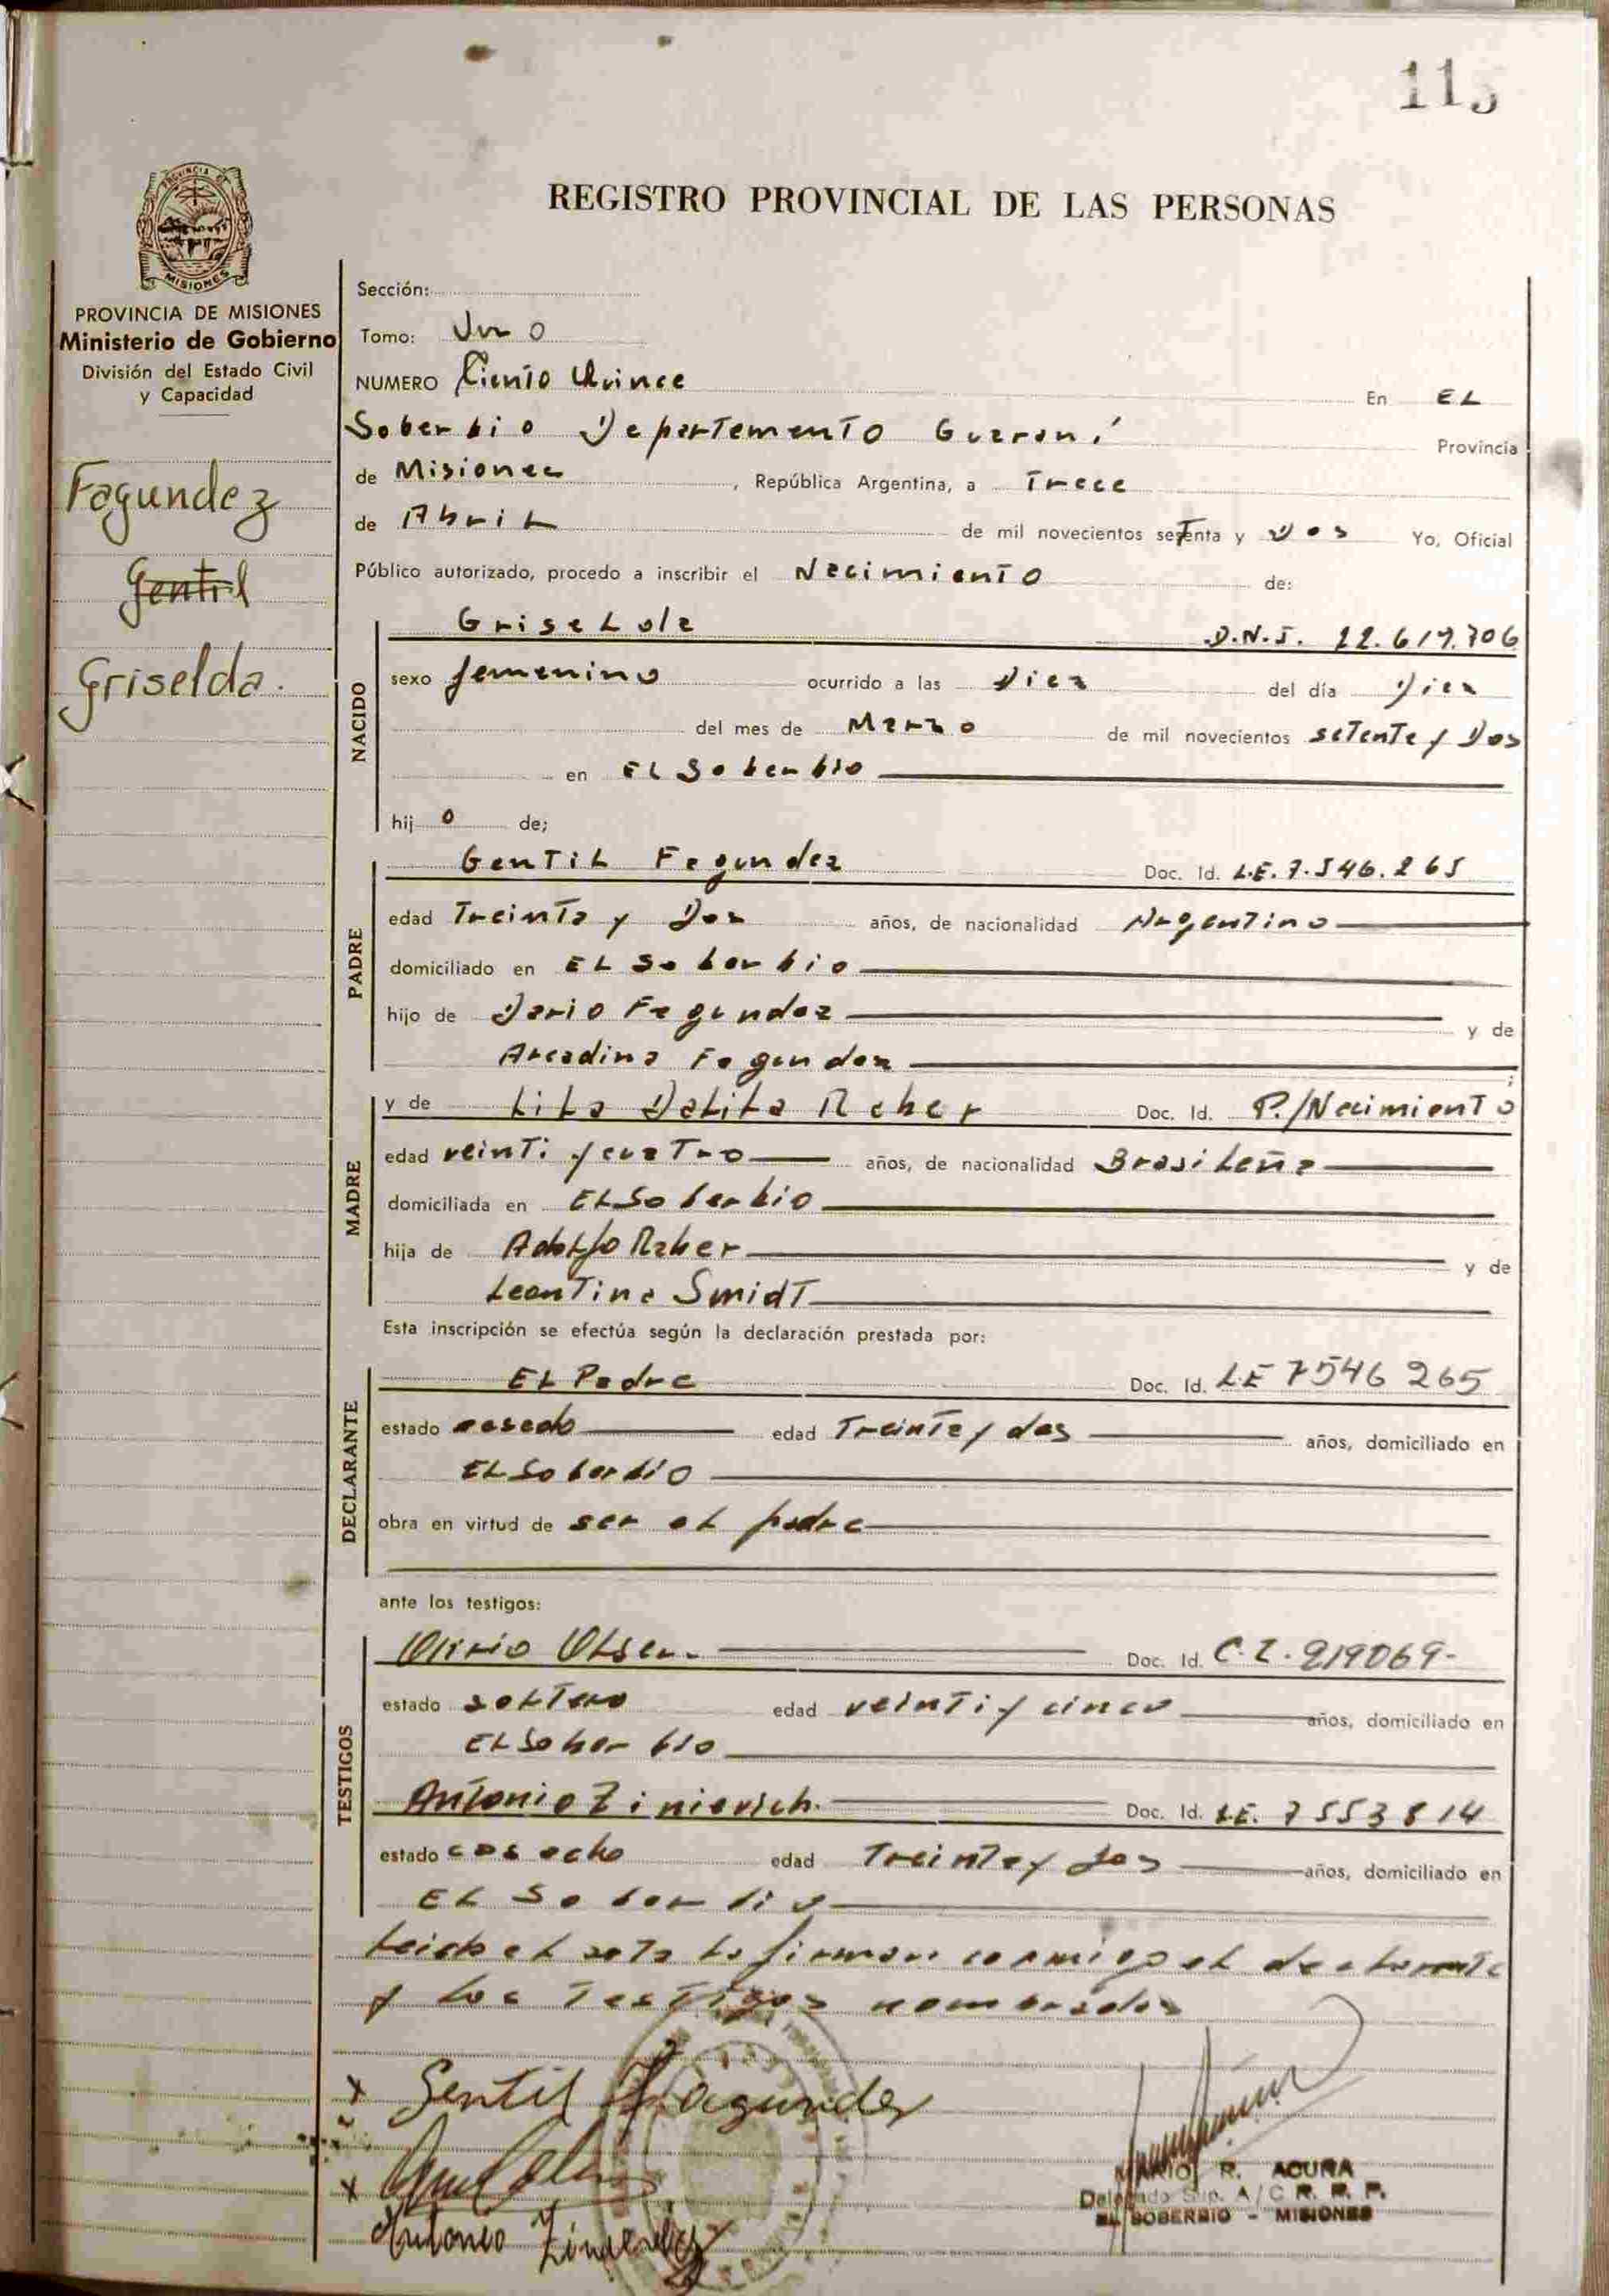 115
PROVINCIA DE
MISIONES
REGISTRO PROVINCIAL DE LAS PERSONAS
PROVINCIA DE MISIONES
Ministerio de Gobierno
División del Estado Civil
y Capacidad
Fagundez
Gentil
Griselda.
Sección:
Tomo: Uno
NUMERO Ciento Quince En EL
Soberbio Departamento Guaraní Provincia
de Misiones, República Argentina, a Trece
de Abril de mil novecientos setenta y Dos Yo, Oficial
Público autorizado, procedo a inscribir el Nacimiento de:
NACIDO
Griselda D.N.I. 22.617.706
sexo femenino ocurrido a las Diez del día Diez
del mes de Marzo de mil novecientos setenta y Dos
en EL Soberbio
hij o de;
PADRE
Gentil Fagundez Doc. Id. L.E. 7.546.265
edad Treinta y Dos años, de nacionalidad Argentino
domiciliado en EL Soberbio
hijo de Dario Fagundez y de
Arcadina Fagundez ;
MADRE
y de Lila Dalila Raber Doc. Id. P./Nacimiento
edad veinti y cuatro años, de nacionalidad Brasileña
domiciliada en EL Soberbio
hija de Adolfo Raber y de
Leontina Smidt
Esta inscripción se efectúa según la declaración prestada por:
DECLARANTE
EL Padre Doc. Id. LE 7546 265
estado casado edad Treinta y dos años, domiciliado en
EL Soberbio
obra en virtud de ser el padre
ante los testigos:
TESTIGOS
Olirio Olsen. Doc. Id. C.I. 219069-
estado soltero edad veinti y cinco años, domiciliado en
EL Soberbio
Antonio Doc. Id. LE. 7553814
estado edad Treinta y dos años, domiciliado en
EL Soberbio
Leida el acta la firman conmigo el declarante
y los Testigos nombrados
x Gentil Fagundez
x
Antonio
MARIO R. ACUÑA
Delegado Sup. A/C R. P. P.
EL SOBERBIO - MISIONES